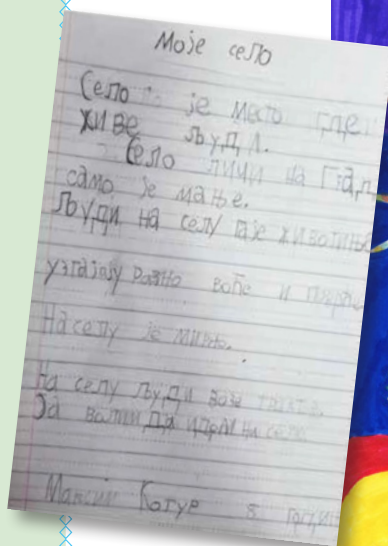 Моје село
Село је место где
живе људи.
Село личи на град
само је мање.
Људи на селу гаје животиње
узгајају разно воће и поврће
На селу је мирно.
На селу људи возе
Ја волим да идем на село
Максим Котур 8 година